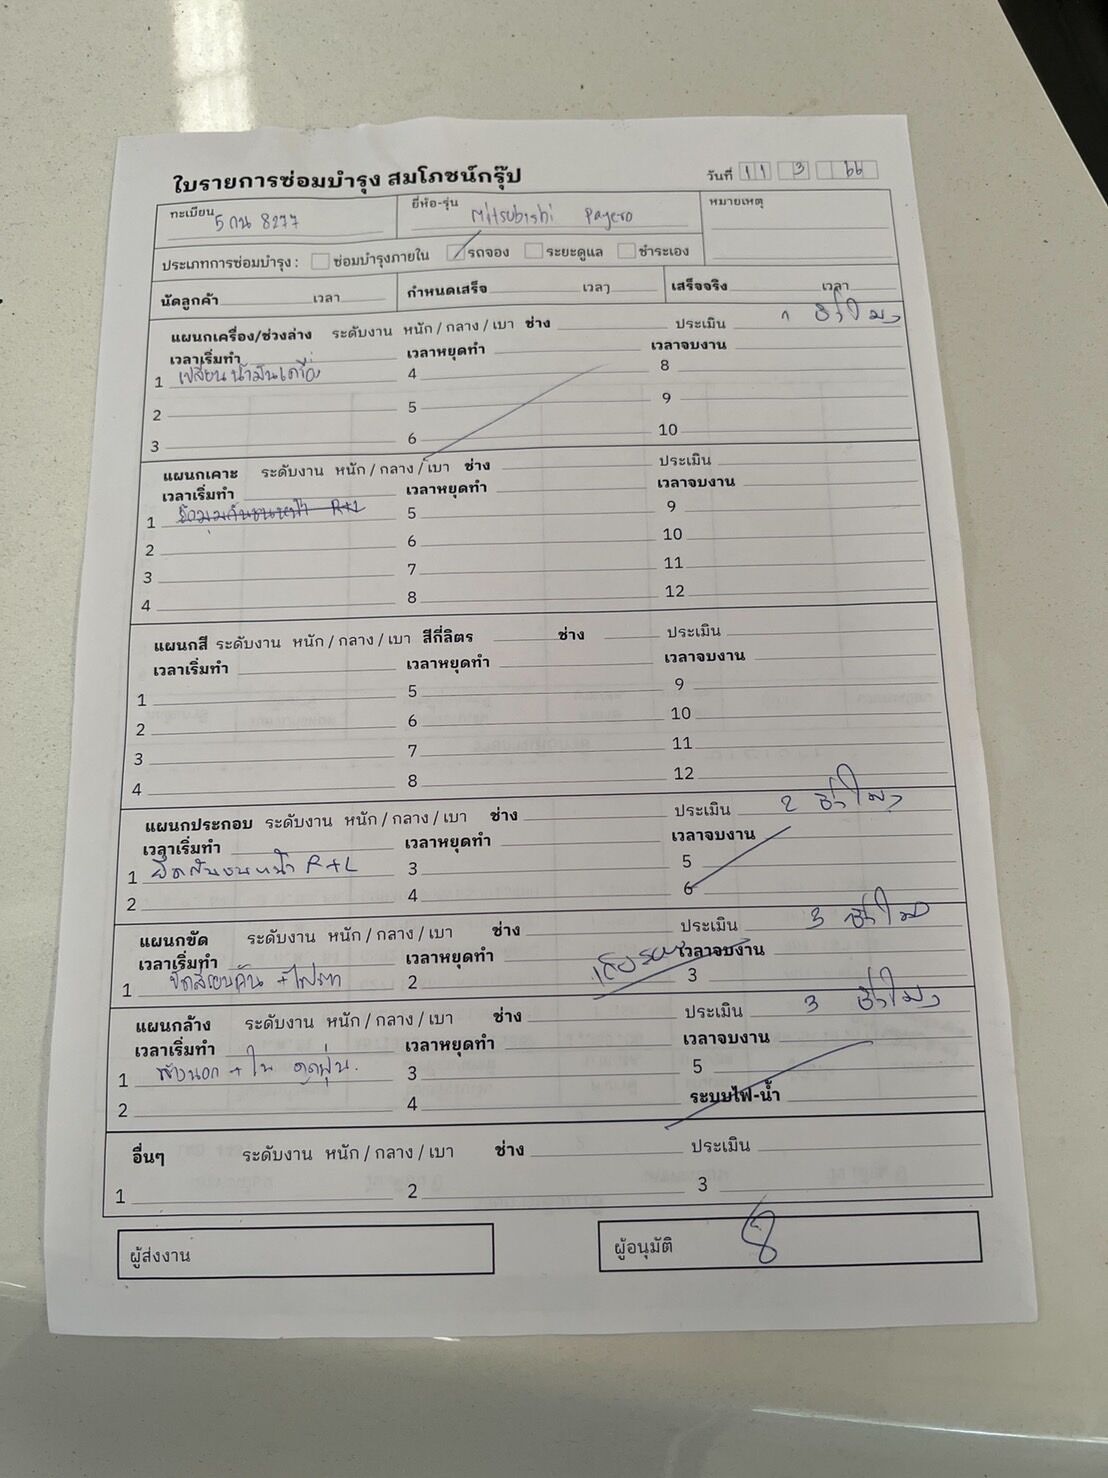 ใบรายการซ่อมบำรุง สมโภชน์กรุ๊ป
วันที่ 11 3 66
ทะเบียน 5 กน 8277 ยี่ห้อ-รุ่น Mitsubishi Pajero หมายเหตุ
ประเภทการซ่อมบำรุง : ซ่อมบำรุงภายใน รถจอง ระยะดูแล ชำระเอง
นัดลูกค้า เวลา กำหนดเสร็จ เวลา เสร็จจริง เวลา
แผนกเครื่อง/ช่วงล่าง ระดับงาน หนัก / กลาง / เบา ช่าง ประเมิน 1 ชั่วโมง
เวลาเริ่มทำ เวลาหยุดทำ เวลาจบงาน
1 เปลี่ยนน้ำมันเครื่อง 4 8
2 5 9
3 6 10
แผนกเคาะ ระดับงาน หนัก / กลาง / เบา ช่าง ประเมิน
เวลาเริ่มทำ เวลาหยุดทำ เวลาจบงาน
1 กันชนหน้า R+L 5 9
2 6 10
3 7 11
4 8 12
แผนกสี ระดับงาน หนัก / กลาง / เบา สีกี่ลิตร ช่าง ประเมิน
เวลาเริ่มทำ เวลาหยุดทำ เวลาจบงาน
1 5 9
2 6 10
3 7 11
4 8 12
แผนกประกอบ ระดับงาน หนัก / กลาง / เบา ช่าง ประเมิน 2 ชั่วโมง
เวลาเริ่มทำ เวลาหยุดทำ เวลาจบงาน
1 ยึดกันชนหน้า R+L 3 5
2 4 6
แผนกขัด ระดับงาน หนัก / กลาง / เบา ช่าง ประเมิน 3 ชั่วโมง
เวลาเริ่มทำ เวลาหยุดทำ เวลาจบงาน
1 ขัดสีรอบคัน + ไฟตา 2 3
แผนกล้าง ระดับงาน หนัก / กลาง / เบา ช่าง ประเมิน 3 ชั่วโมง
เวลาเริ่มทำ เวลาหยุดทำ เวลาจบงาน
1 ล้างนอก + ใน ดูดฝุ่น. 3 5
2 4 ระบบไฟ-น้ำ
อื่นๆ ระดับงาน หนัก / กลาง / เบา ช่าง ประเมิน
1 2 3
ผู้ส่งงาน ผู้อนุมัติ